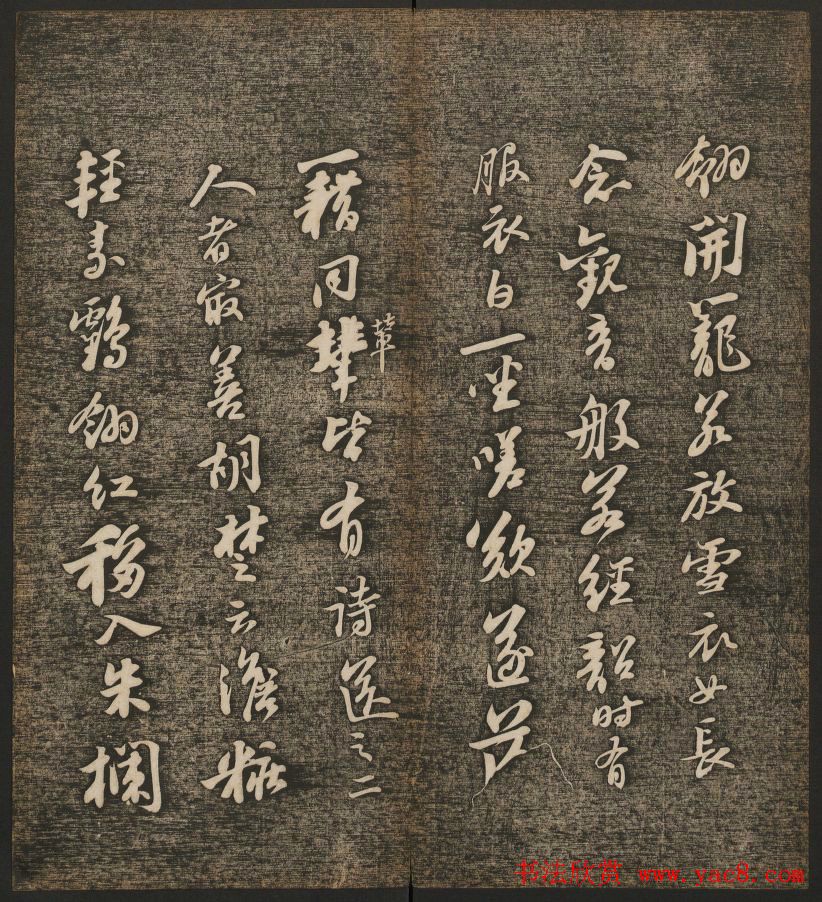 翎開籠若放雪衣女長
念觀音般若經韶時有
服衣白一坐嗟歎遂落
籍同輦輩皆有詩送之二
人者最善胡楚云澹粧
輕素鶴翎紅移入朱欄
书法欣赏 www.yac8.com